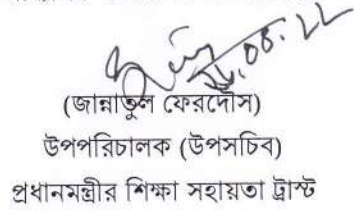 (জান্নাতুল ফেরদৌস)
উপপরিচালক (উপসচিব)
প্রধানমন্ত্রীর শিক্ষা সহায়তা ট্রাস্ট